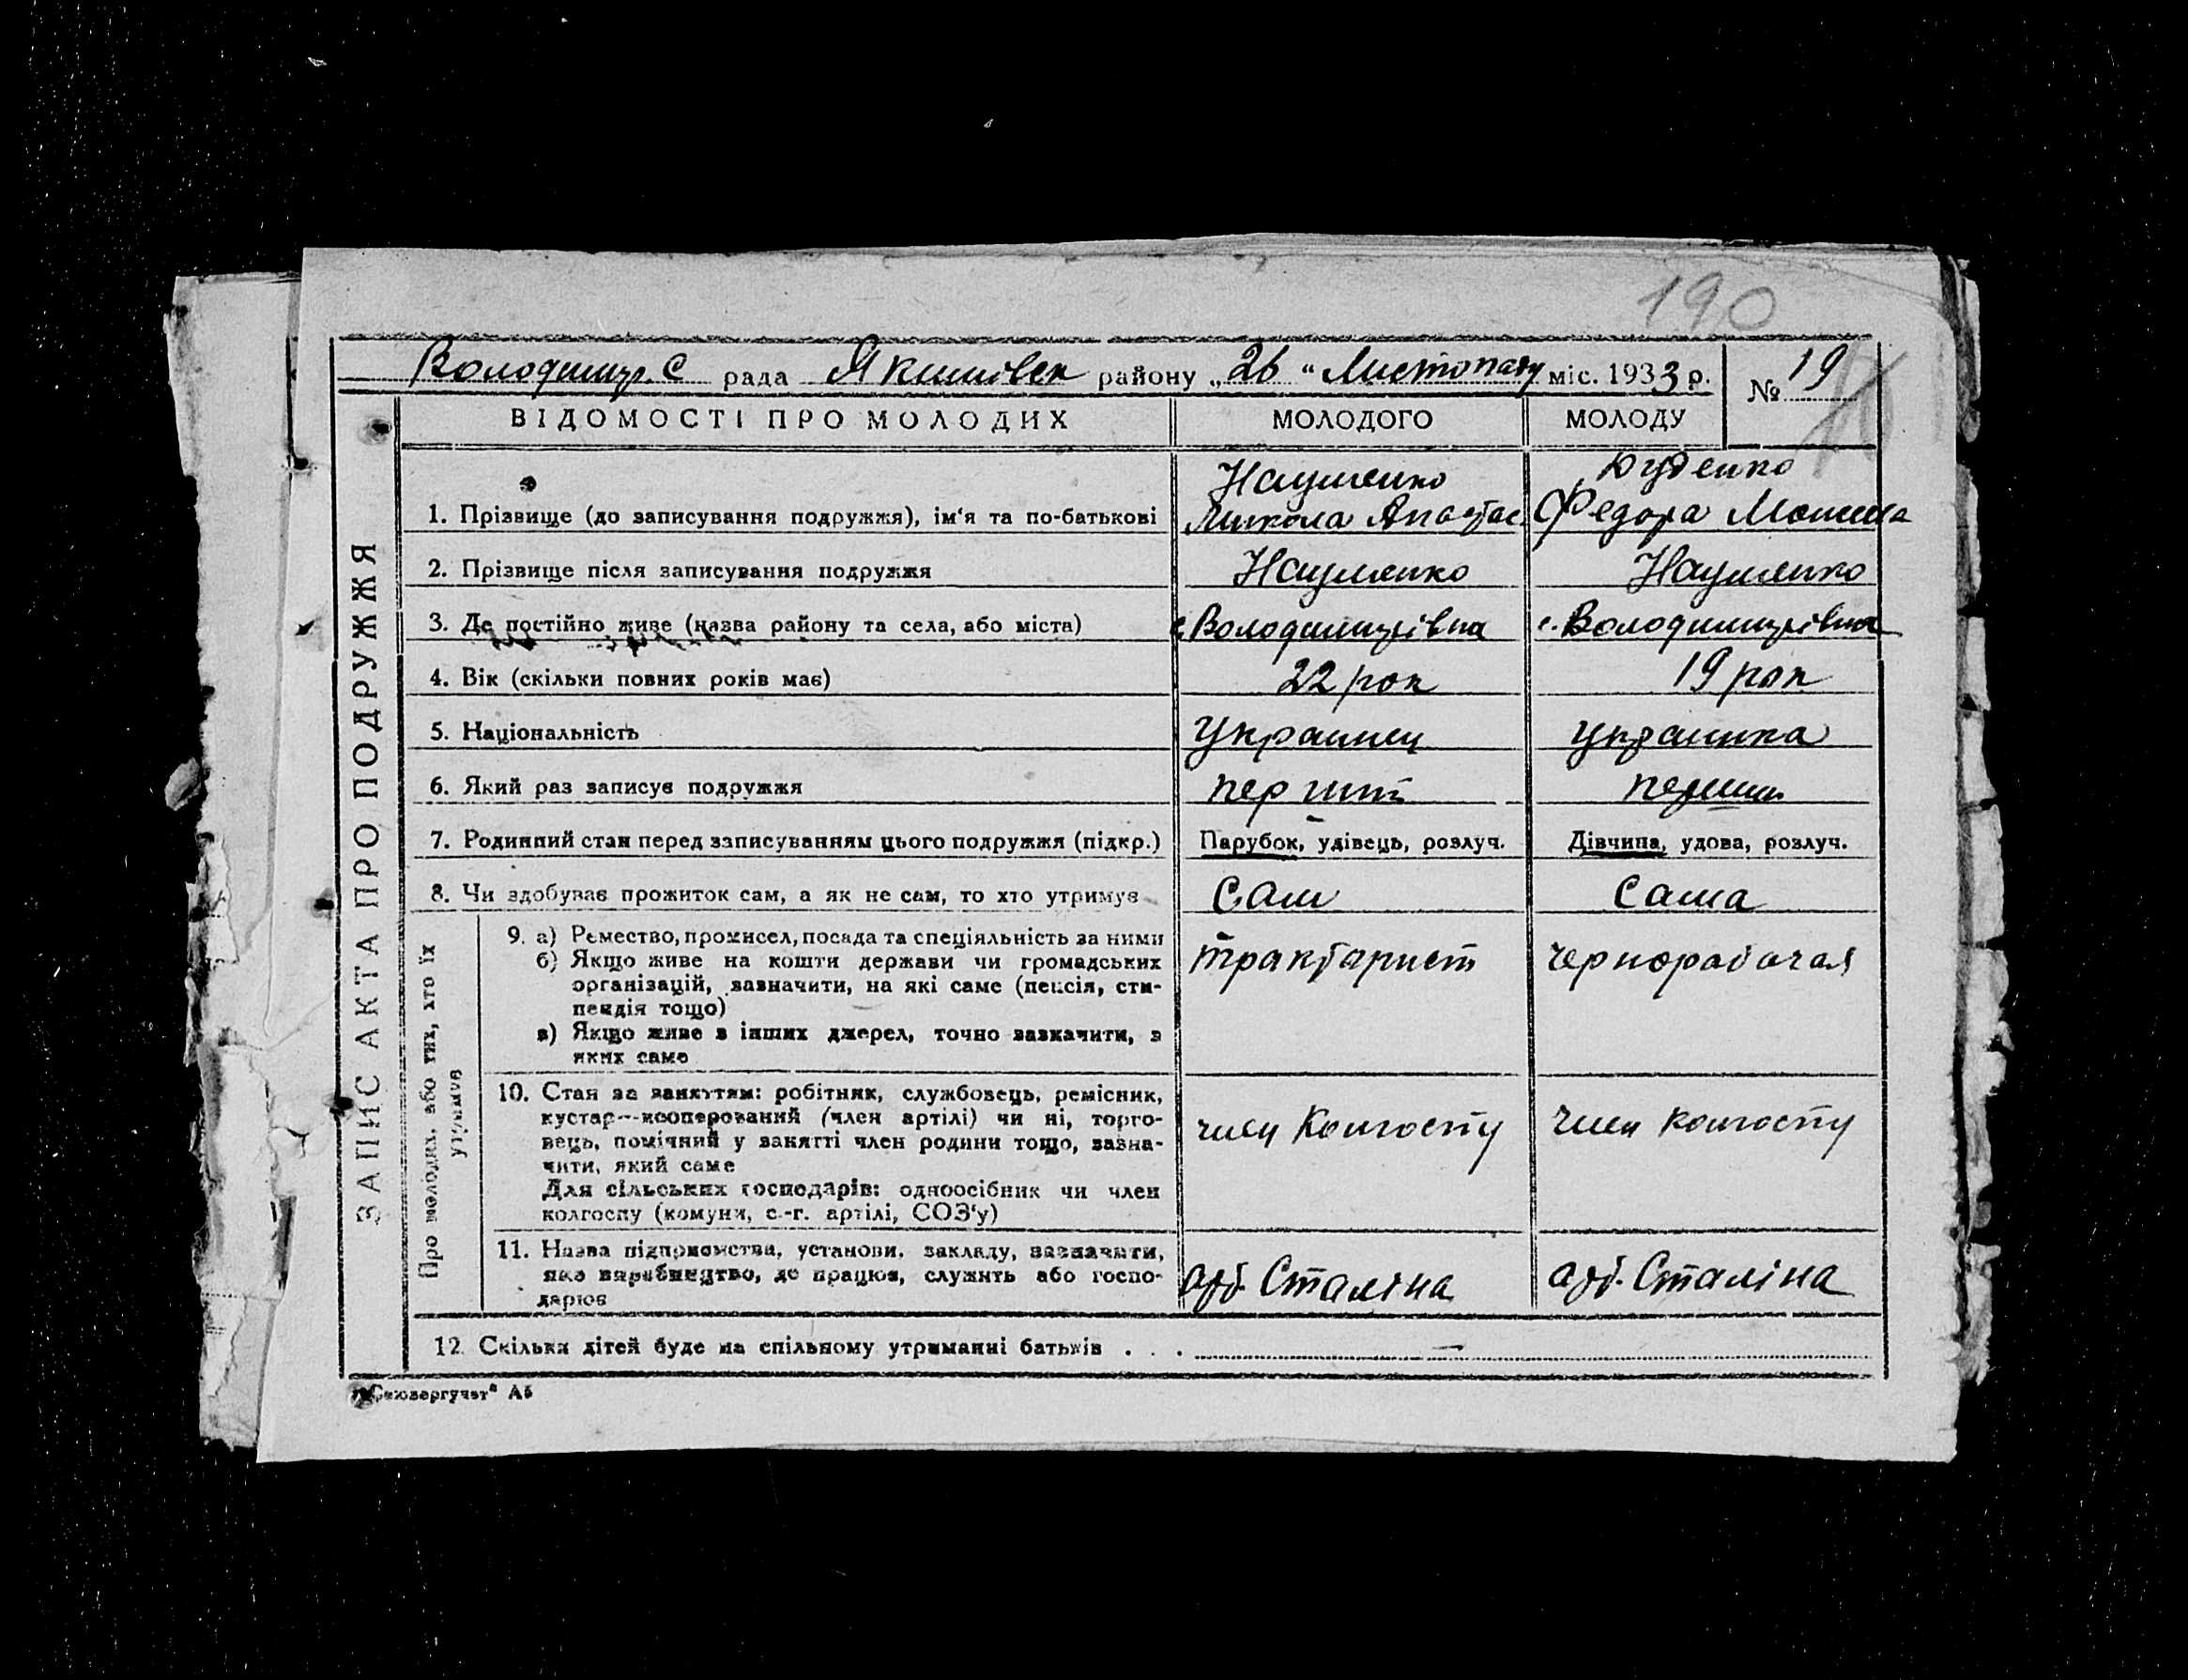 190
Володимир. С рада Якимовск району „26“ Листопаду міс. 1933 р. № 19
ЗАПИС АКТА ПРО ПОДРУЖЖЯ
ВІДОМОСТІ ПРО МОЛОДИХ МОЛОДОГО МОЛОДУ
Науменко Дуденко
1. Прізвище (до записування подружжя), ім‘я та по-батькові Микола Апастас. Федора
2. Прізвище після записування подружжя Науменко Науменко
3. Де постійно живе (назва району та села, або міста) с. Володимирівка с. Володимирівка
4. Вік (скільки повних років має) 22 рок 19 рок
5. Національність Украинец украинка
6. Який раз записує подружжя перший перший
7. Родинний стан перед записуванням цього подружжя (підкр.) Парубок, удівець, розлуч. Дівчина, удова, розлуч.
8. Чи здобуває прожиток сам, а як не сам, то хто утримує сам сама
Про молодих, або тих, хто їх
утримує
9. а) Ремество, промисел, посада та спеціяльність за ними тракторист чернорабочая
б) Якщо живе на кошти держави чи громадських
організацій, зазначити, на які саме (пенсія, сти-
пендія тощо)
в) Якщо живе з інших джерел, точно зазначити, з
яких саме
10. Стан за заняттям: робітник, службовець, ремісник,
кустар—кооперований (член артілі) чи ні, торго-
вець, помічний у занятті член родини тощо, зазна- член колгоспу член колгоспу
чити, який саме
Для сільських господарів: одноосібник чи член
колгоспу (комуни, с.-г. артілі, СОЗ‘у)
11. Назва підприємства, установи, закладу, зазначити,
яке виробництво, де працює, служить або госпо- арт. Сталіна арт. Сталіна
дарює
12. Скільки дітей буде на спільному утриманні батьків . . . —
„Союзоргучет“ А5